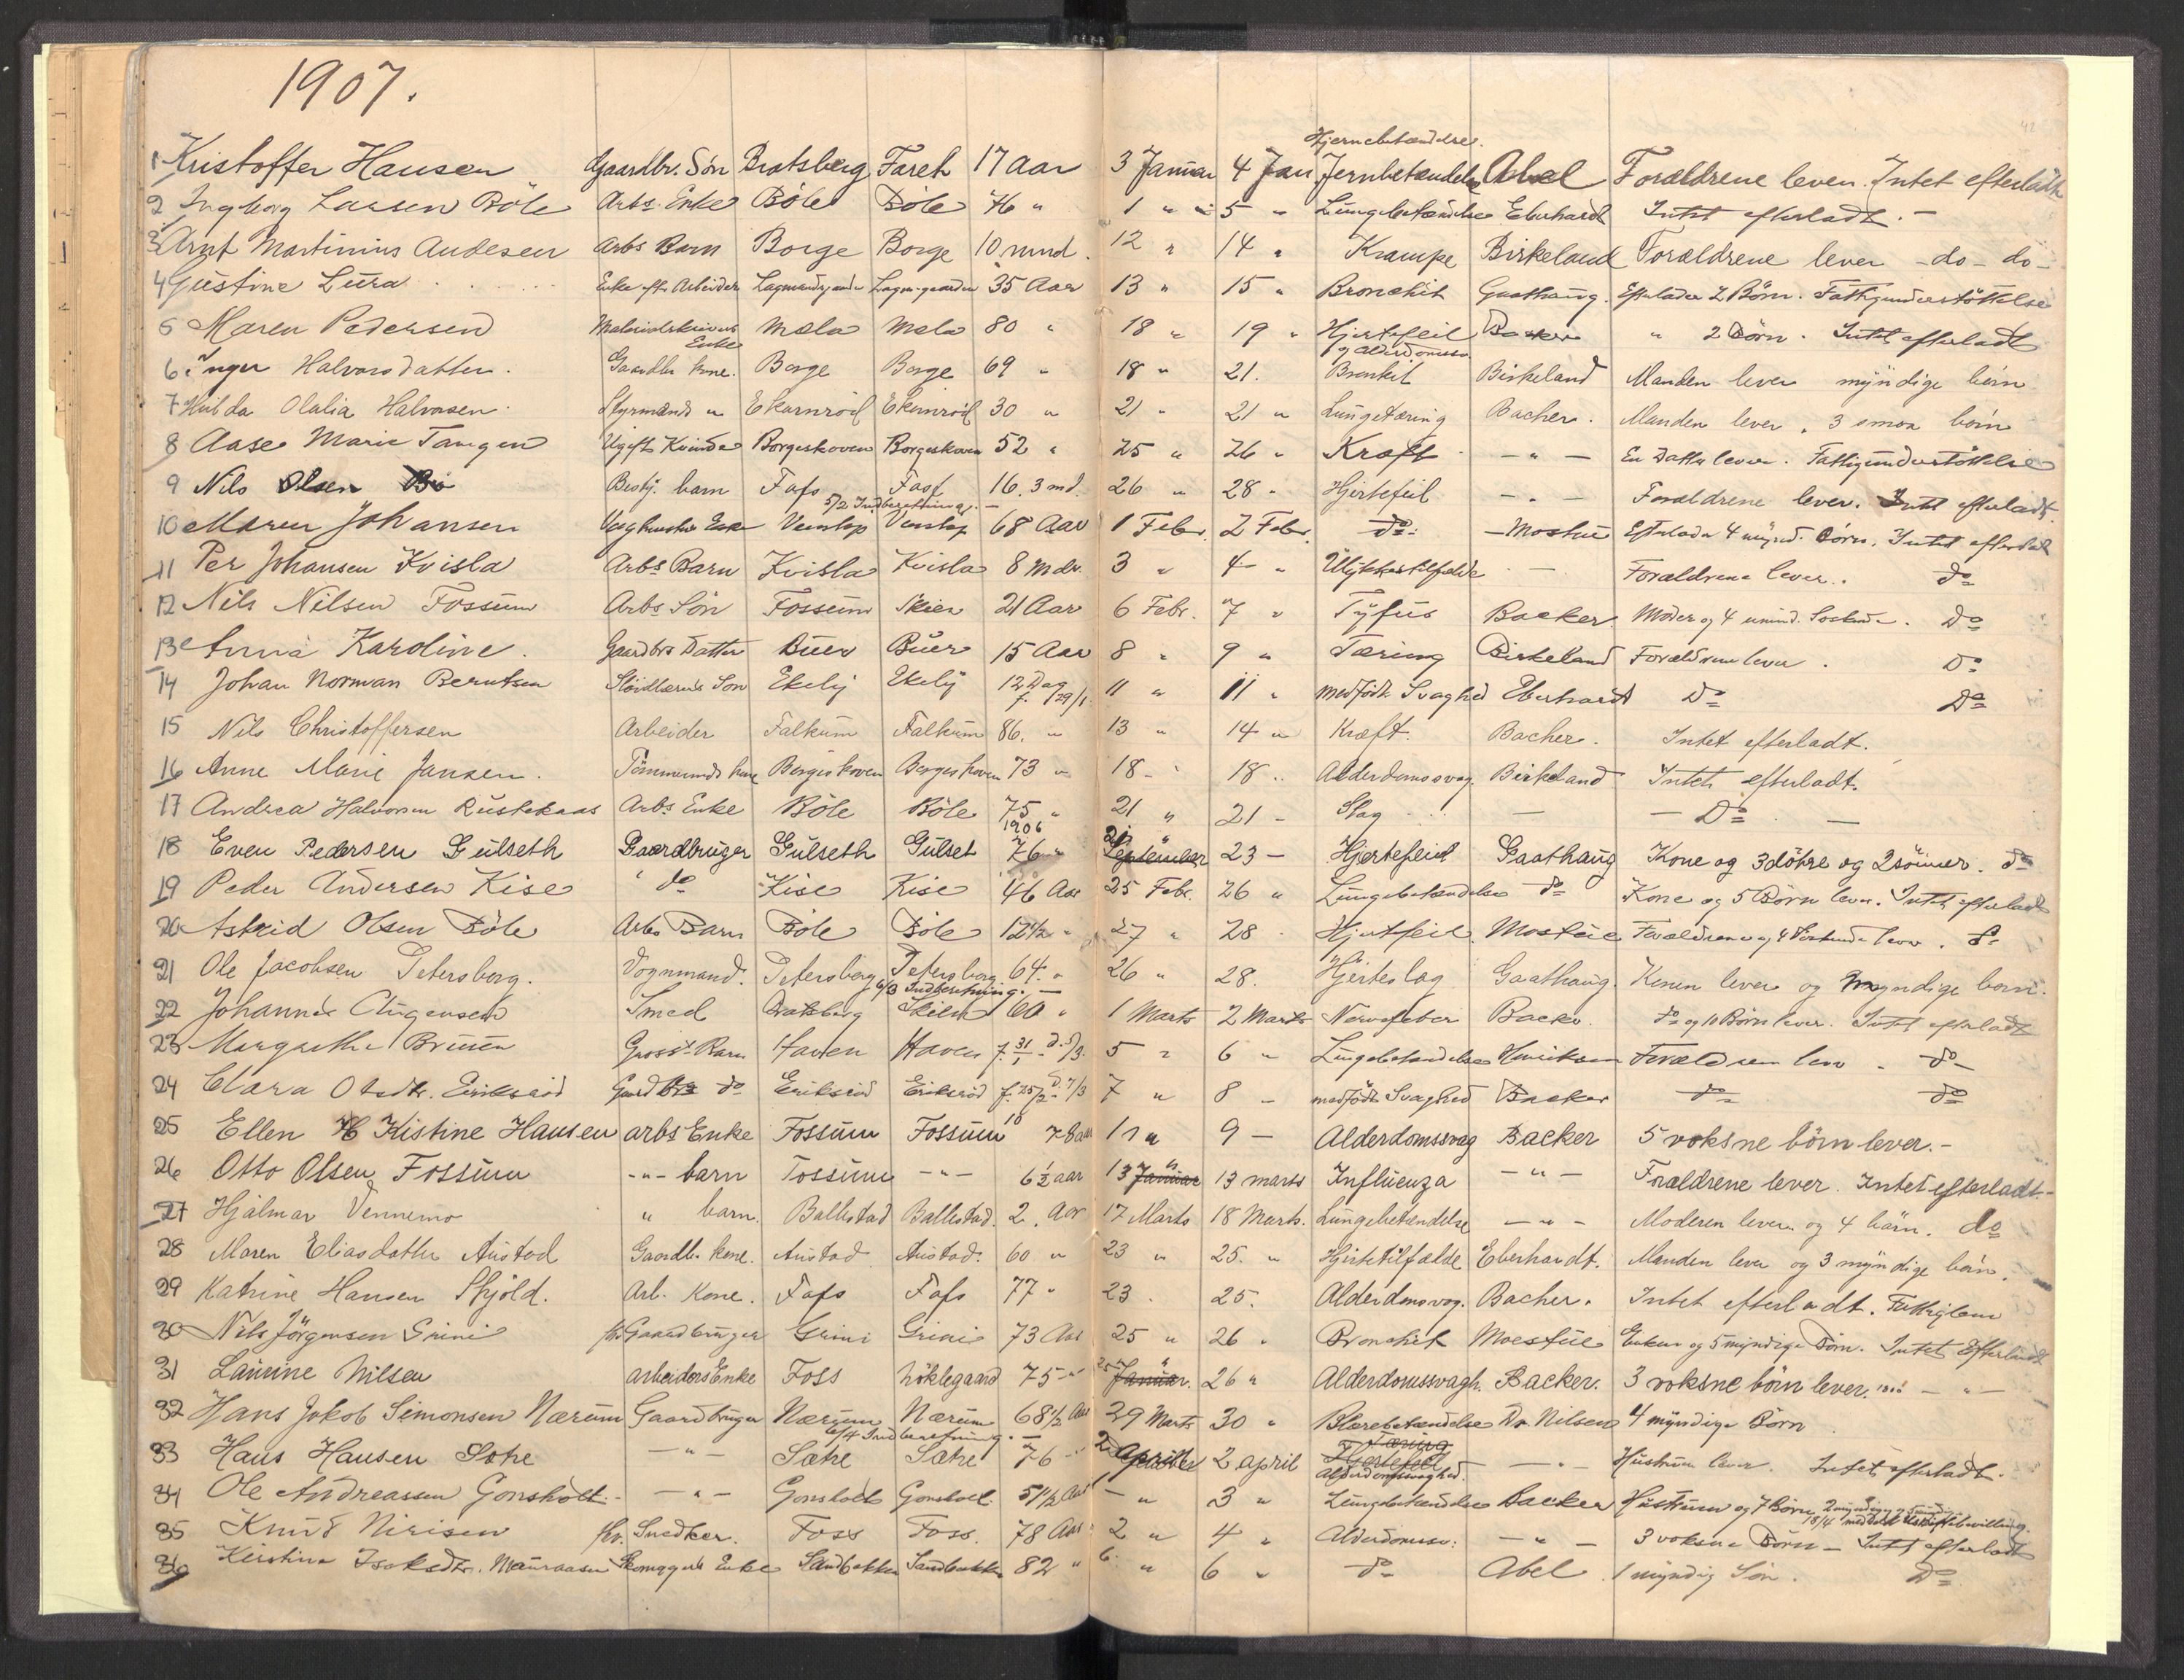 1907.
42
Hjernebetændelse.
1 Kristoffer Hansen Gaardbr. Søn Bratsberg Foreh 17 Aar 3 Januar 4 Jan Jernbetændelse Abel Forældrene lever. Intet efterladt
2 Ingborg Larsen Böle Arbs Enke Böle Böle 76 " 1 " 5 " Lungebetændelse Eberhardt Intet efterladt. -
3 Arnt Martinius Andesen Arbs Barn Borge Borge 10 mnd. 12 " 14 " Krampe Birkeland Forældrene lever -do- do-
4 Gustine Lura Enke eft. Arbeider Lagmandsgaarden Lagm-gaarden 35 Aar 13 " 15 " Bronchit Gaathaug. Efterlader 2 Börn. Fattigunderstöttelse
5 Maren Pedersen Materialskrivers Enke Mæla Mæla 80 " 18 " 19 " Hjertefeil og Alderdomssv. Backer " 2 Börn. Intet efterladt
6 Inger Halvorsdatter. Gaardbr kone. Borge Borge 69 " 18 " 21. Bronkit Birkeland Manden lever myndige börn
7 Hulda Olalia Halvorsen. Styrmands " Ekornröd Ekornröd 30 " 21 " 21 " Lungetæring Bacher. Manden lever, 3 smaa börn
8 Aase Marie Tangen Ugift Kvinde Borgeskoven Borgeskoven 52 " 25 " 26 " Kræft - " - En datter lever. Fattigunderstöttelse
9 Nils Olsen Bö Besty. barn Fafs Fasf 16. 3 md. 26 " 28 " Hjertefeil - " - Forældrene lever. Intet efterladt.
5/2 Indberetning. -
10 Maren Johansen Enke Venstop Venstop 68 Aar 1 Febr. 2 Febr. do: - Mostue Efterlader 4 mynd. Börn. Intet efterladt
11 Per Johansen Kvisla Arbs Barn Kvisla Kvisla 8 Mdr. 3 " 4 " Ulykkestilfælde - Forældrene lever. do
12 Nils Nilsen Fossum Arbs Sön Fossum Skien 21 Aar 6 Febr. 7 " Tyfus Backer. Moder og 4 umynd. Söskende. Do
13 Anna Karoline. Gaardbrs Datter Buer Buer 15 Aar 8 " 9 " Tæring Birkeland Forældrene lever. Do
14 Johan Norman Berntsen Sløidlærers Søn Ekely Ekely 12 Dag f. 29/1. 11 " 11 " medfödt Svaghed Eberhardt Do Do
15 Nils Christoffersen Arbeider Falkum Falkum 86. " 13 " 14 " Kræft. Bacher. Intet efterladt.
16 Anne Marie Jansen. Tömmermds kone Borgeskoven Borgeskoven 73 " 18 - 18 .. Alderdomssvag. Birkeland Intet efterladt.
17 Andrea Halvorsen Rustekaas Arbs Enke Böle Böle 75 " 21 " 21 - Slag - - Do -
18 Even Pedersen Gulseth Gaardbruger Gulseth Gulset 1906 76 " 21 September 23 - Hjertefeil Gaathaug Kone og 3 döttre og 2 sönner. do
19 Peder Andersen Kise do Kise Kise 46 Aar 25 Febr. 26 " Lungebetændelse do Kone og 5 Börn lever. Intet efterladt
20 Astrid Olsen Böle Arbs Barn Böle Böle 12 1/2 " 27 " 28 - Hjertefeil. Mostue Forældrene og 4 Söskende lever. do
21 Ole Jacobsen Petersborg. Vognmand. Petersborg Petersborg 64. " 26 " 28. Hjerteslag Gaathaug. Konen lever og myndige börn.
6/3 Indberetning. -
22 Johannes Smed Bratsberg Skien 60 " 1 Marts 2 Marts Nervefeber Backer. do og 10 Börn lever. Intet efterladt
23 Margrethe Bruun Gross. Barn Haven Haven f. 31/1 - d. 5/3. 5 " 6 " Lungebetændelse Henriksen Forældrene lever. do -
24 Clara Olsdtr. Eriksröd Gaardbrs do Eriksröd Eriksröd f. 25/2 - d. 7/3 7 " 8 - medfödt Svaghed Backer do do
25 Ellen H Kistine Hansen arbs Enke Fossum Fossum 78 aar 9 - Alderdomssvag Backer 5 voksne börn lever. -
26 Otto Olsen Fossum - " - barn Fossum - " - 6 1/2 aar 13 Januar 13 marts Influenza - " - Forældrene lever. Intet efterladt -
27 Hjalmar Vennemo " barn. Ballestad Ballestad. 2. Aar 17 Marts 18 Marts. Lungebetændelse - " - Moderen lever og 4 börn. do
28 Maren Eliasdatter Austad Gaardb. kone. Austad Austad. 60 " 23 " 25. " Hjertetilfælde Eberhardt. Manden lever og 3 myndige börn.
29 Katrine Hansen Skjöld. Arb. Kone. Fafs Fafs 77 " 23. 25. Alderdomsvag. Bacher. Intet efterladt. Fattiglem
30 Nils Jörgensen Grini fhv. Gaardbruger Grini Grini 73 Aar 25 " 26 " Bronchit Moestue Enken og 5 myndige Börn. Intet Efterladt
31 Laurine Nilsen arbeiders Enke Foss Löklegaard 75 - " 25 Januar. 26 " Alderdomssvagh. Backer. 3 voksne börn lever. - " -
32 Hans Jokob Simonsen Nærum Gaardbruger Nærum Nærum 68 1/2 Aar 29 Marts 30 " Blærebetændelse Dr. Nilsen 4 myndige Börn
6/4 Indberetning. -
33 Hans Hansen Sætre - " - Sætre Sætre 76 - " 2 April 2 april Tæring Hjertefeil Alderdomssvaghed. - " - Hustruen lever. Intet efterladt.
34 Ole Andreassen Gonsholt - - " - Gonsholt Gonsholt 51 1/2 Aar - " 3 " Lungebetændelse Backer Hustruen og 7 Börn, 2 myndige 5 umyndige 18/4 meddelt Uskiftebevilling.
35 Knud Nirisen fhv. Snedker. Foss Foss. 78 Aar 2 " 4 " Alderdomssv: - " - 3 voksne Börn - Intet efterladt
36 Kirstine Isaksdtr. Mauraasen Enke Sandbakken Sandbakken 82 " 6. " 6 " do Abel 1 myndig Sön. Do